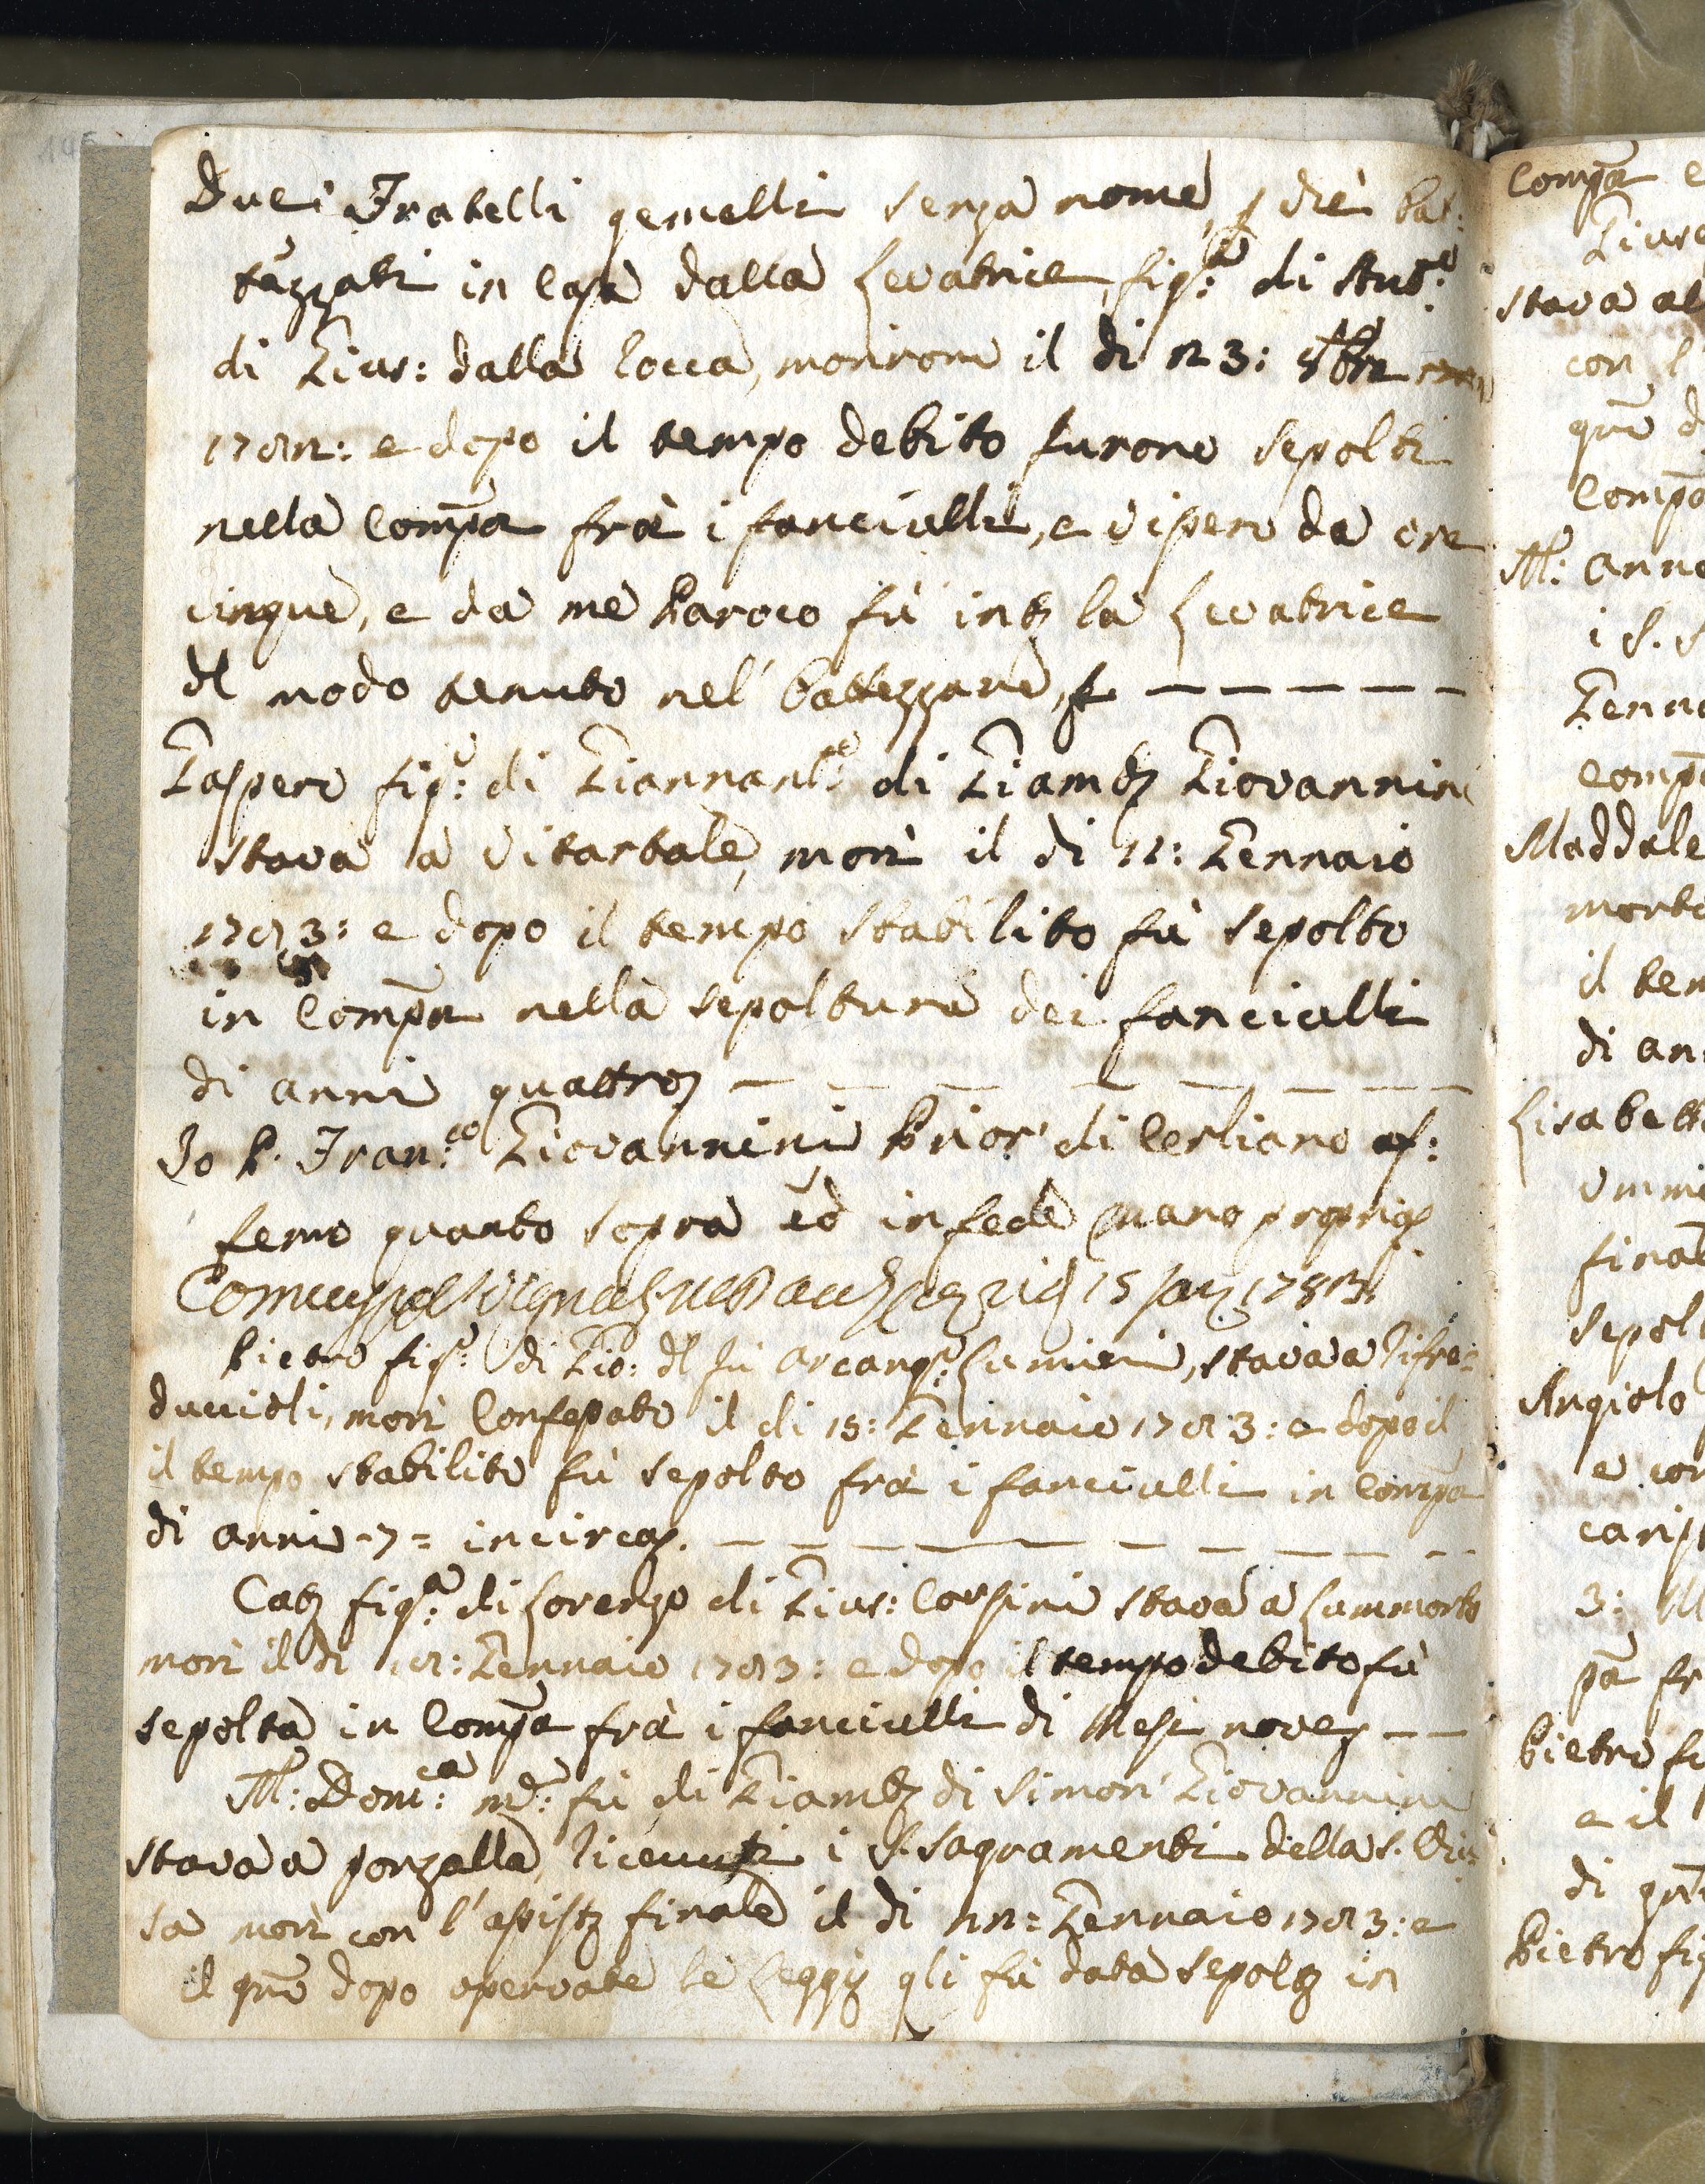 Due Fratelli gemelli senza nome, p che bat:
tezzati in Casa dalla Levatrice, fig:li di Ant:o
di Gius: dalla Rocca, morirono il di 23: 8bre
1782: e dopo il tempo debito furono sepolti
nella Compa frà i fanciulli, e vissero da ore
cinque, e da me Paroco fù int la Levatrice
dl modo tenuto nel' battezzare
Gaspero fig:o di Giannant:o di Giamb Giovannini
stava a Vitartale, morì il di 12: Gennaio
1783: e dopo il tempo stabilito fù sepolto
in Compa nella sepoltura dei fanciulli
di anni quattro
Io P. Fran:co Giovannini Prior' di Cerliano af:
fermo quanto sopra ed in fede mano propria
15 1783
Pietro fig:o di Gio: dl fù Arcang:o stava a Rifre:
duccioli, morì Confessato il di 15: Gennaio 1783: e dopo il
il tempo stabilito fù sepolto frà i fanciulli in Compa
di anni -7= incirca.
Cat fig:a di Lorenzo di Gius: Corsini stava a
morì il di 18: Gennaio 1783: e dopo il tempo debito fù
sepolta in Compa frà i fanciulli di Mesi nove
M: Dom:ca md: fù di Giamb di Simon' Giovannini
stava a ponzalla, ricevuti i S. sagramenti della S. Chie:
sa morì con l'assist finale il di 22: Gennaio 1783: e
il qme dopo osservate le Leggi gli fù data sepolt in
Compa
stava al
con l'
qme
Compa
M: Anna
i S. S
Genna
Compa
Maddale
morta
il tem
di an
Lisabett
final
sepol
Angiolo
e con
3:
pa fr
Pietro fi
e il
di
Pietro fig